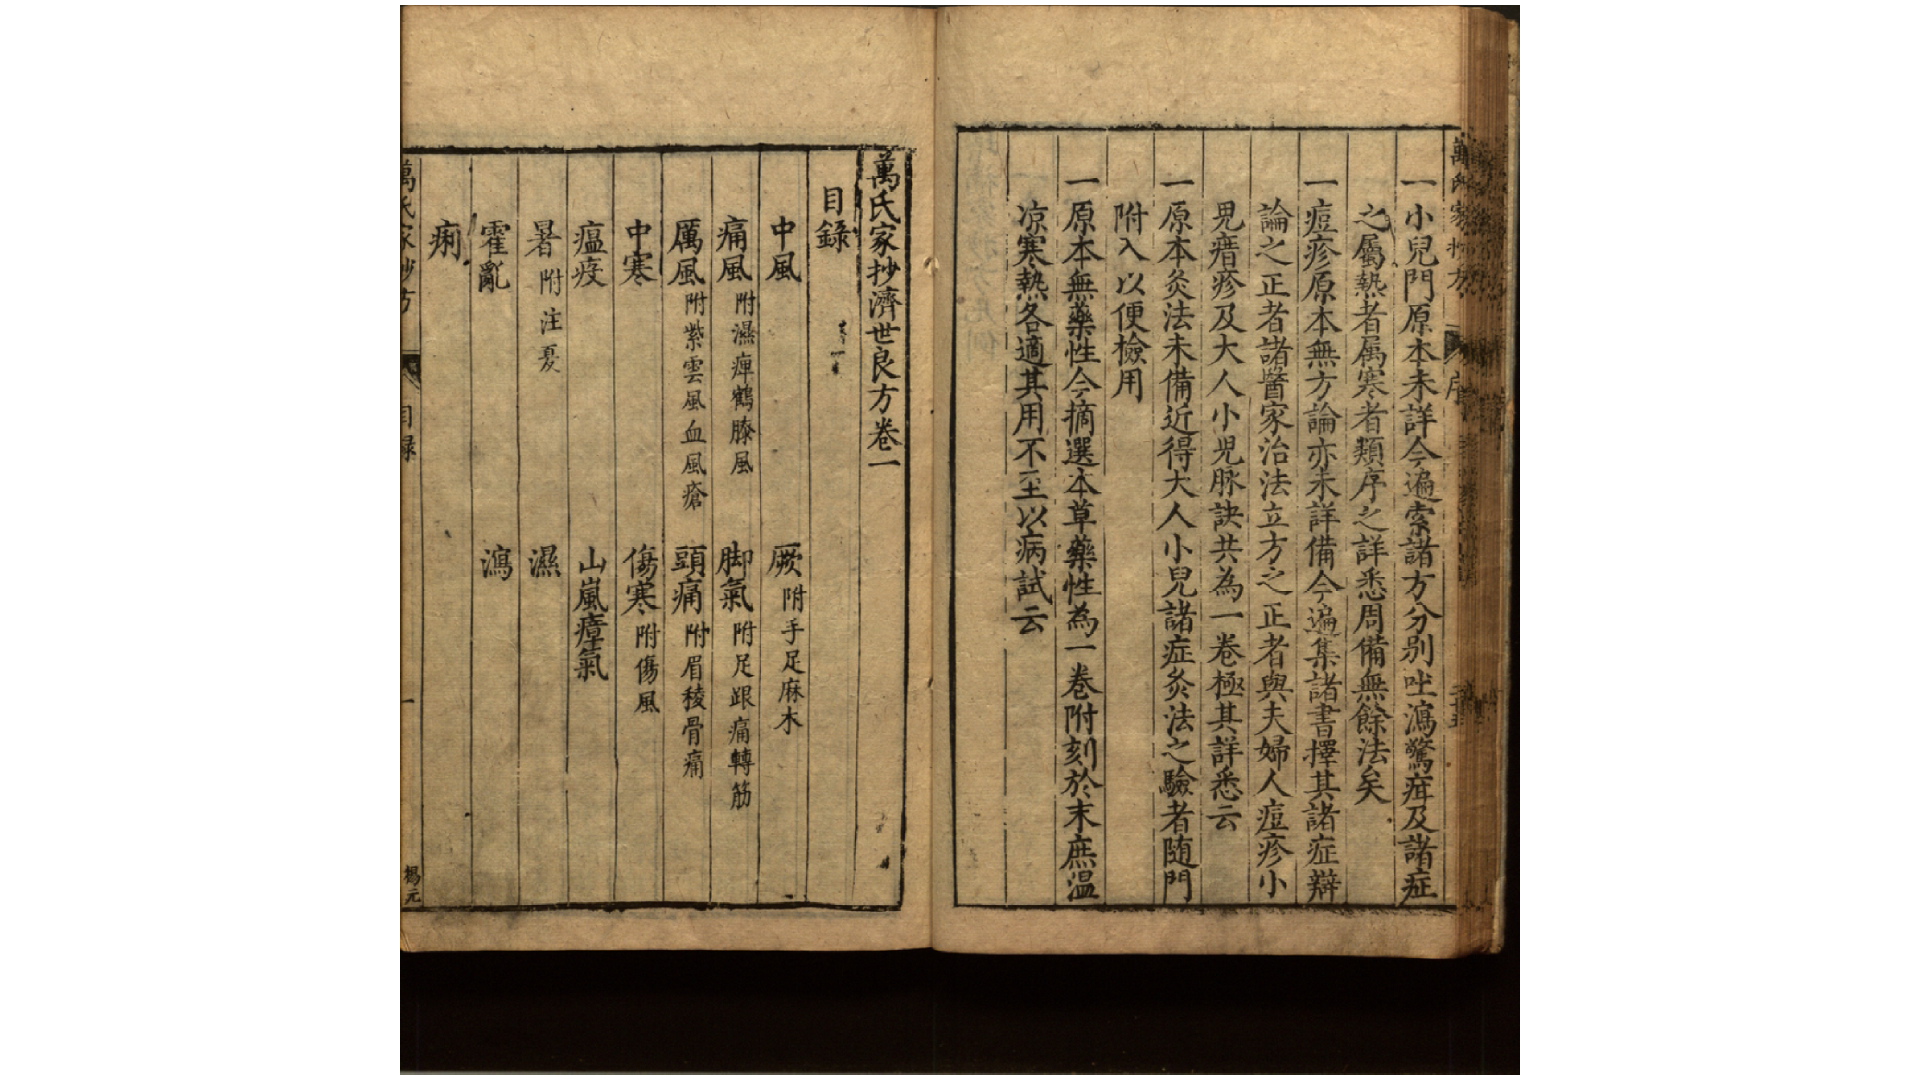 一小兒門原本未詳今遍索諸方分别吐瀉驚疳及諸症
之屬熱者属寒者類序之詳悉周備無餘法矣
一痘疹原本無方論亦未詳備今遍集諸書擇其諸症辯
論之正者諸醫家治法立方之正者與夫婦人痘疹小
児瘄疹及大人小児脉訣共為一卷極其詳悉云
一原本灸法未備近得大人小兒諸症灸法之驗者随門
附入以便檢用
一原本無藥性今摘選本草藥性為一卷附刻於末庶温
凉寒熱各適其用不至以病試云
萬氏家抄濟世良方卷一
目錄
中風 厥附手足麻木
痛風附濕痺鶴膝風 脚氣附足跟痛轉筋
厲風附紫雲風血風瘡 頭痛附眉稜骨痛
中寒 傷寒附傷風
瘟疫 山嵐瘴氣
暑附注夏 濕
霍亂 瀉
痢
萬氏家抄方 目録 一